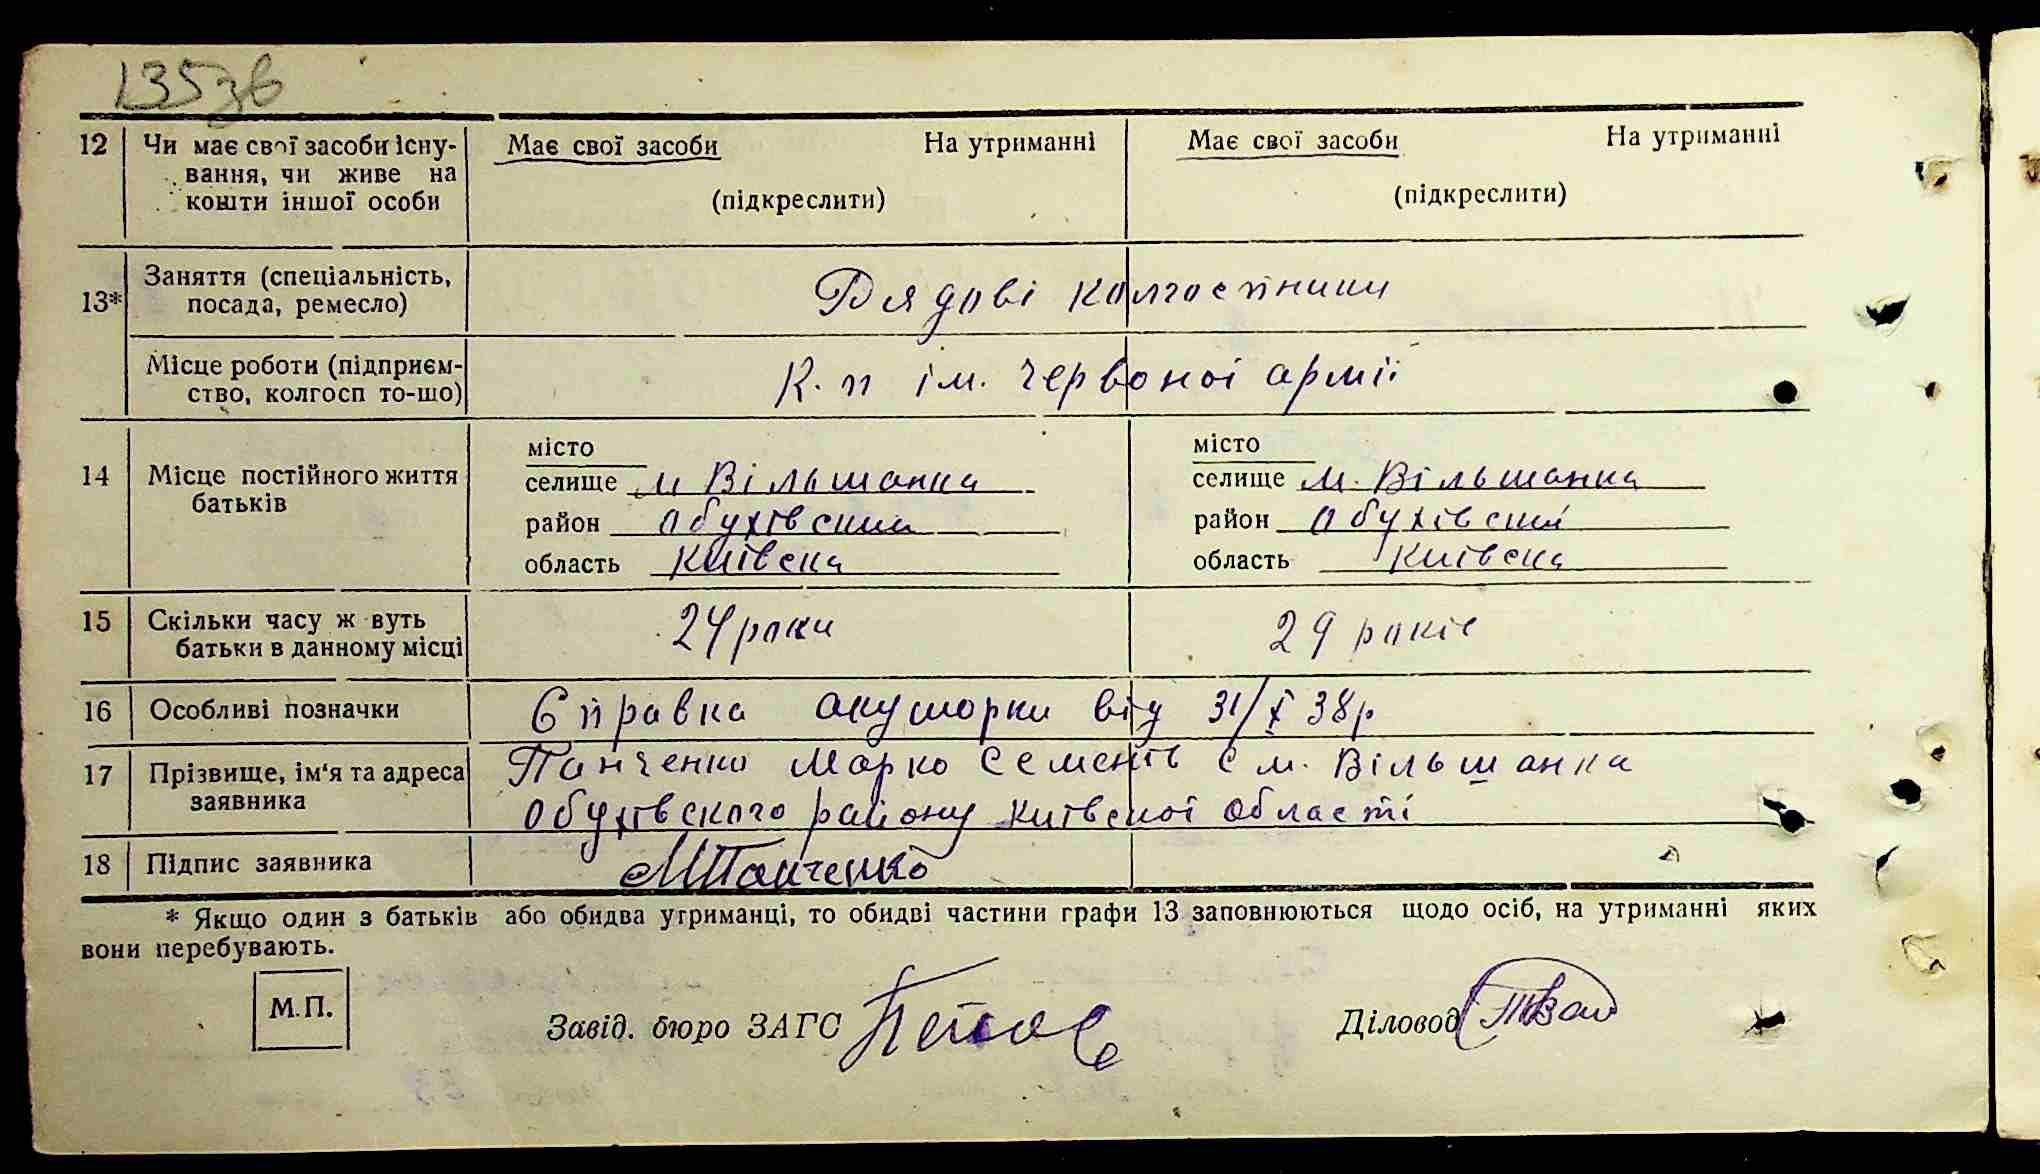 135зв
12 Чи має свої засоби існу-
вання, чи живе на
кошти іншої особи
Має свої засоби На утриманні
(підкреслити)
Має свої засоби На утриманні
(підкреслити)
13* Заняття (спеціальність,
посада, ремесло)
Рядові колгоспники
Місце роботи (підприєм-
ство, колгосп то-що)
К. п ім. червоної армії
14 Місце постійного життя
батьків
місто
селище м Вільшанка
район Обухівский
область Київска
місто
селище м. Вільшанка
район Обухівский
область Київска
15 Скільки часу ж вуть
батьки в данному місці
24 роки
29 років
16 Особливі позначки
Справка акушорки від 31/X 38р
17 Прізвище, ім'я та адреса
заявника
Панченко Марко Семенів с м. Вільшанка
Обухівского району Київскої області
18 Підпис заявника
МПанченко
* Якщо один з батьків або обидва утриманці, то обидві частини графи 13 заповнюються щодо осіб, на утриманні яких
вони перебувають.
М.П.
Завід. бюро ЗАГС
Діловод